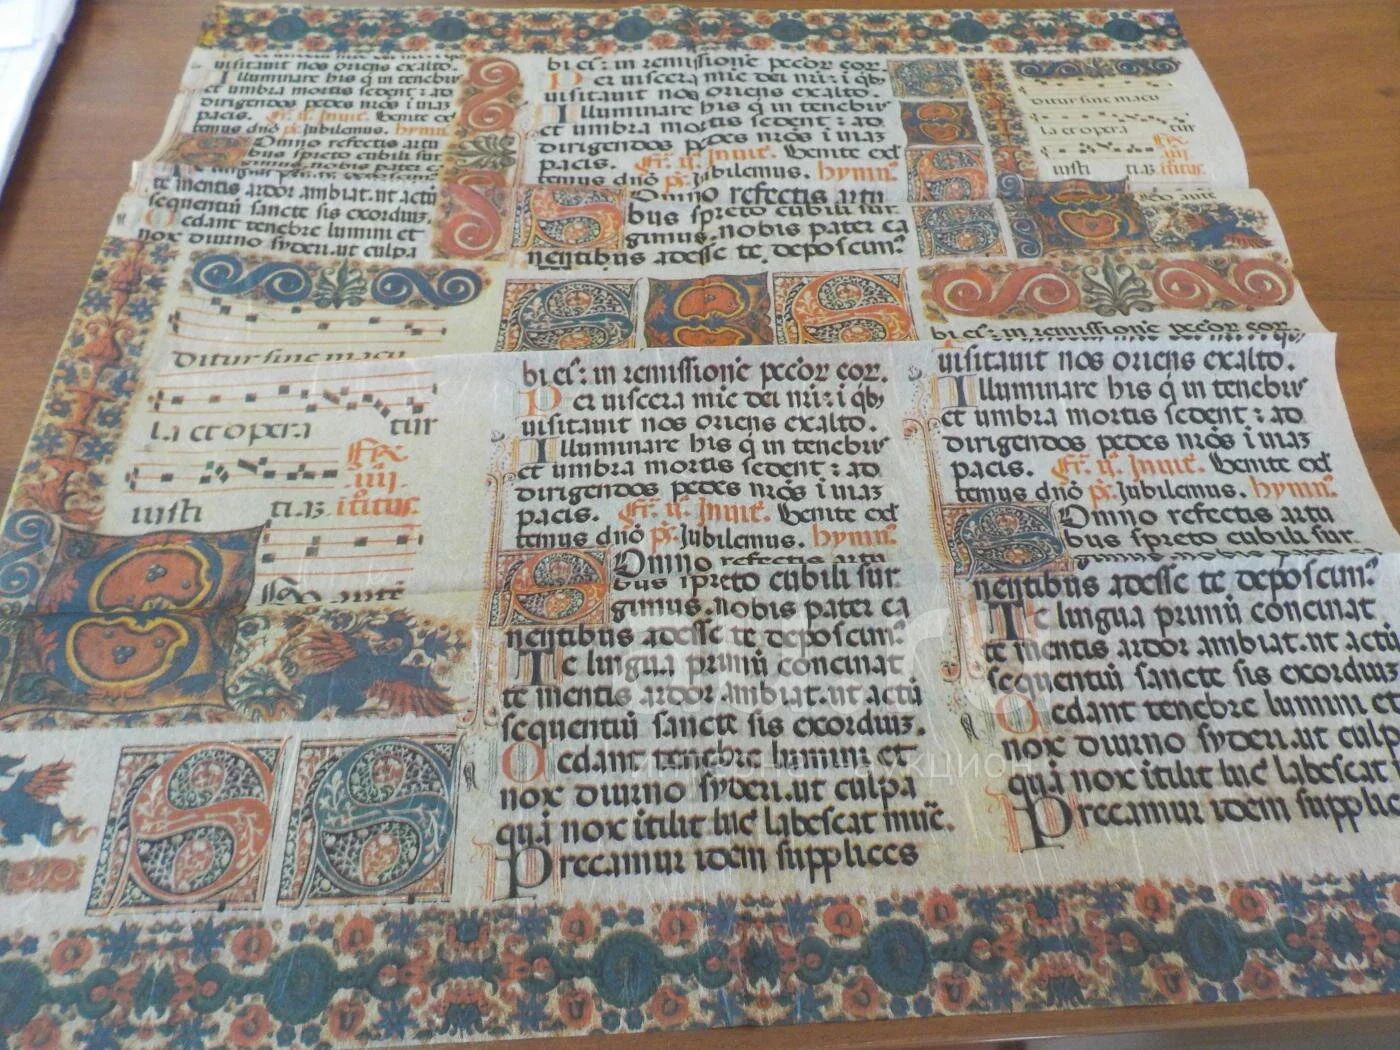 visitavit nos oriens exalto.
Illuminare his q̄ in tenebris
et umbra mortis sedent : ad
dirigendos pedes nr̄os i uiaʒ
pacis. Fr̄. ij. Inuit̄. Venite exl
temus dn̄o p̄s. Jubilemus. hymn̄.
Omno refectis artu
bus spreto cubili sur
te mentis ardor ambiat. ut actū
sequentiū sancte sis exordiuʒ.
Cedant tenebre lumini et
nox diurno syderi. ut culpa
bi eī : in remissionē pcc̄or eor.
Per uiscera mīe dei nr̄i : i qb̄
uisitauit nos oriens exalto.
Illuminare his q̄ in tenebris
et umbra mortis sedent : ad
dirigendos pedes nr̄os i uiaʒ
pacis. Fr̄. ij. Inuit̄. Venite exl
temus dn̄o p̄s. Jubilemus. hymn̄.
Omno refectis artu
bus spreto cubili sur
gimus. nobis pater ca
nentibus adesse te deposcim⁹
ditur sine macu
la et opera tur
Fr̄
iij
iusti tiaʒ
ditur sine macu
la et opera tur
Fr̄
iij
iusti tiaʒ
bi eī : in remissionē pcc̄or eor.
Per uiscera mīe dei nr̄i : i qb̄
uisitauit nos oriens exalto.
Illuminare his q̄ in tenebris
et umbra mortis sedent : ad
dirigendos pedes nr̄os i uiaʒ
pacis. Fr̄. ij. Inuit̄. Venite exl
temus dn̄o p̄s. Jubilemus. hymn̄.
Omno refectis artu
bus spreto cubili sur
gimus. nobis pater ca
nentibus adesse te deposcim⁹
Te lingua primū concinat
te mentis ardor ambiat. ut actū
sequentiū sancte sis exordiuʒ.
Cedant tenebre lumini et
nox diurno syderi. ut culpa
quā nox ītulit luc̄ labescat mun̄.
Precamur idem supplices
bi eī : in remissionē pcc̄or eor.
uisitauit nos oriens exalto.
Illuminare his q̄ in tenebris
et umbra mortis sedent : ad
dirigendos pedes nr̄os i uiaʒ
pacis. Fr̄. ij. Inuit̄. Venite exl
temus dn̄o p̄s. Jubilemus. hymn̄.
Omno refectis artu
bus spreto cubili sur
nentibus adesse te deposcim⁹
Te lingua primū concinat
te mentis ardor ambiat. ut actū
sequentiū sancte sis exordiuʒ
Cedant tenebre lumini et
nox diurno syderi. ut culp
quā nox ītulit luc̄ labescat
Precamur idem supplic